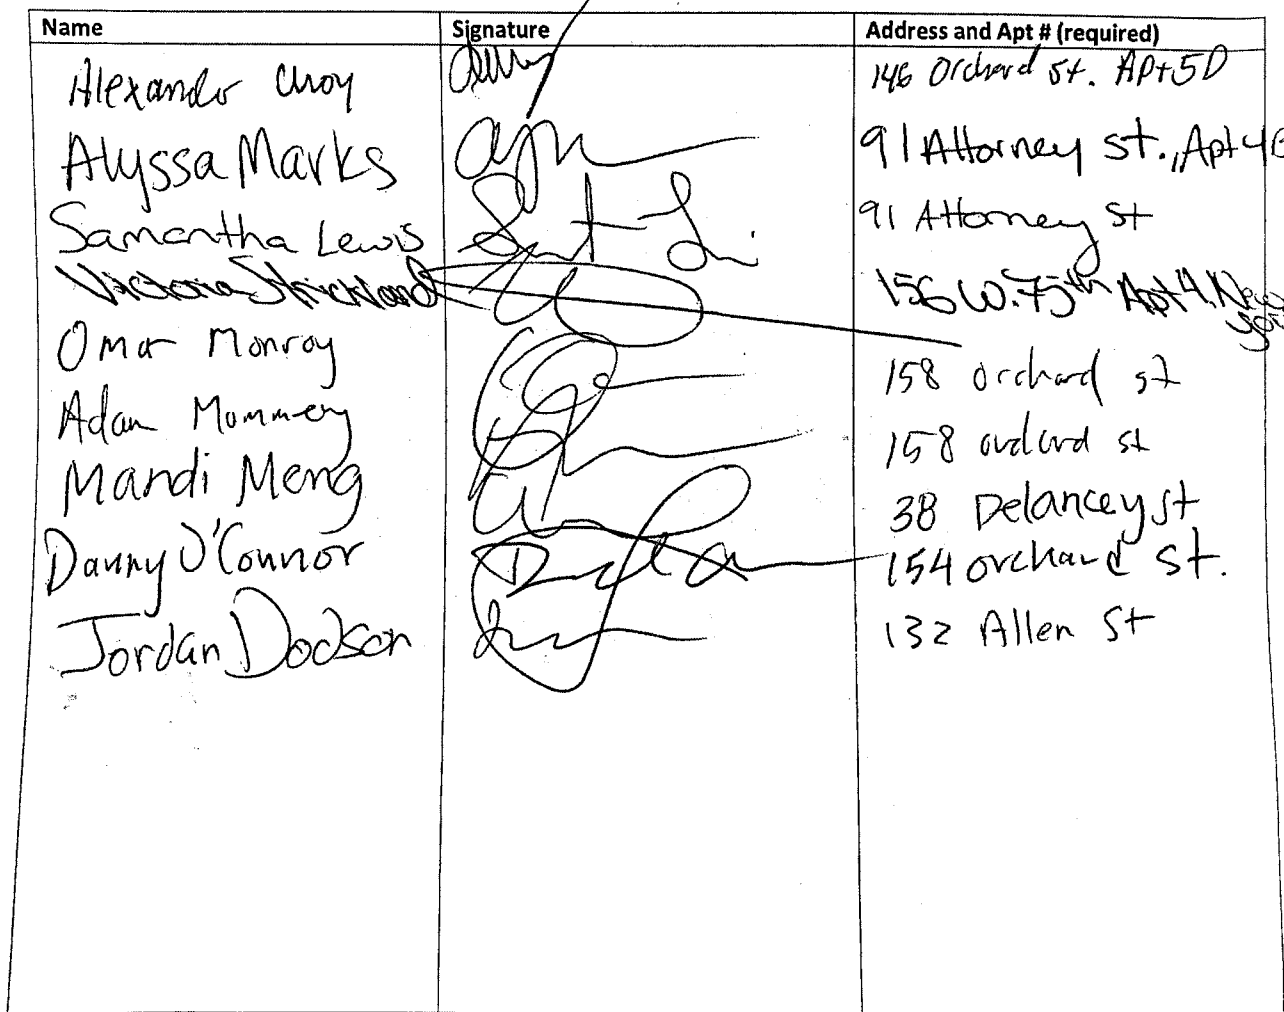 Name Signature Address and Apt # (required)
Alexander Choy 146 Orchard St. APt 5D
Alyssa Marks 91 Attorney St., Apt 4E
Samantha Lewis 91 Attorney St
Victoria Strickland 156 W. 75th Apt 4, New York
Omar Monroy 158 Orchard st
Adam Mommery 158 orchard st
Mandi Meng 38 Delancey st
Danny O'Connor 154 orchard st.
Jordan Dodson 132 Allen St